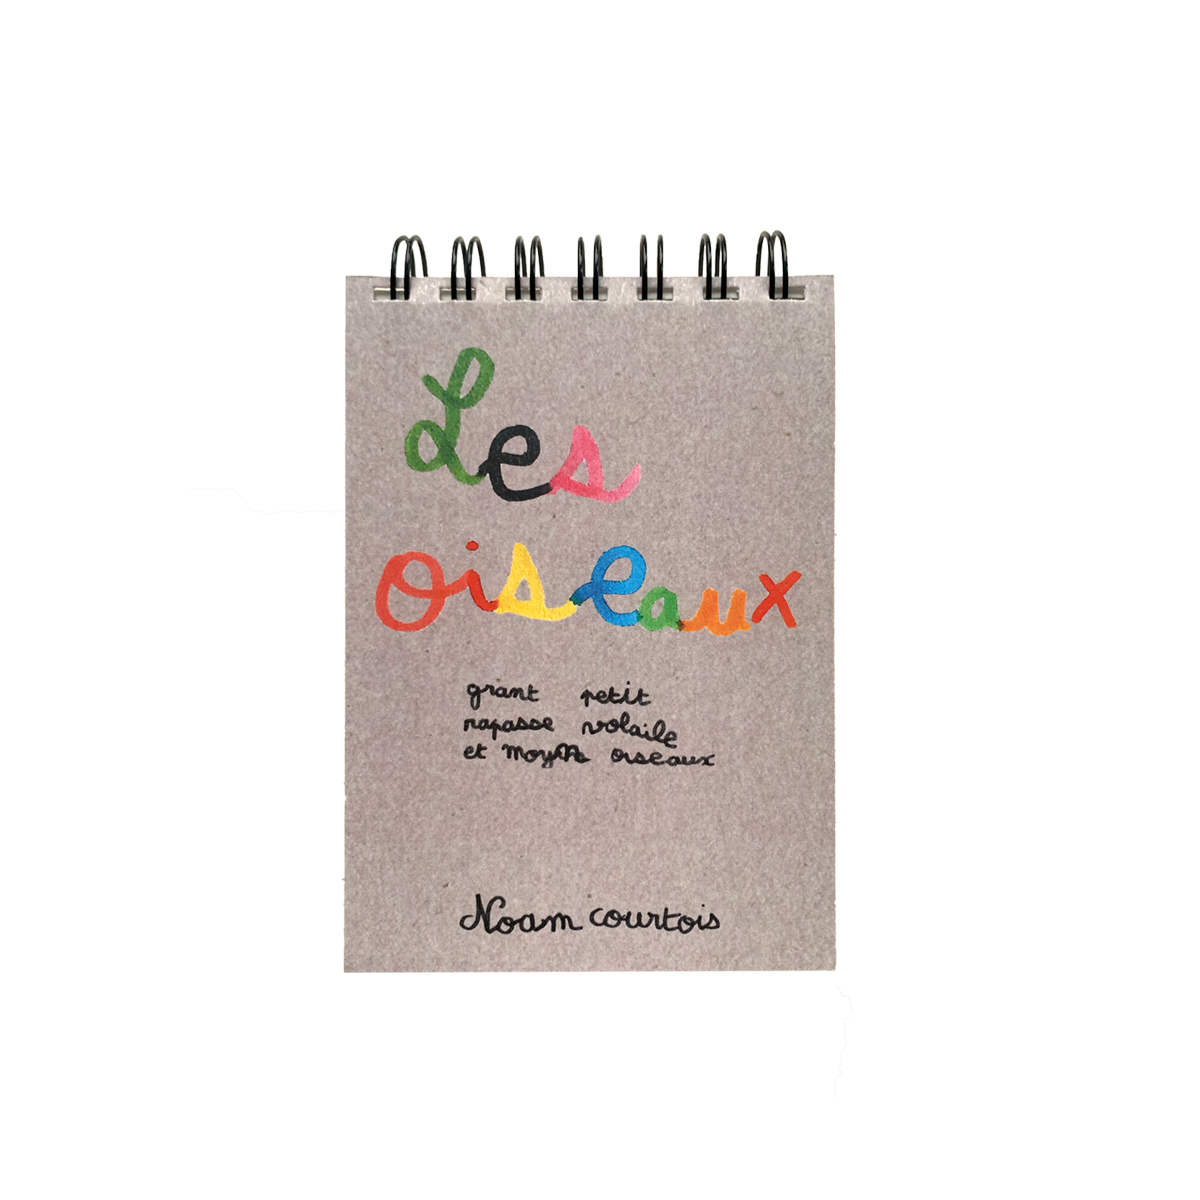 Les
oiseaux
grant petit
rapasse volaile
et moyen oiseaux
Noam courtois